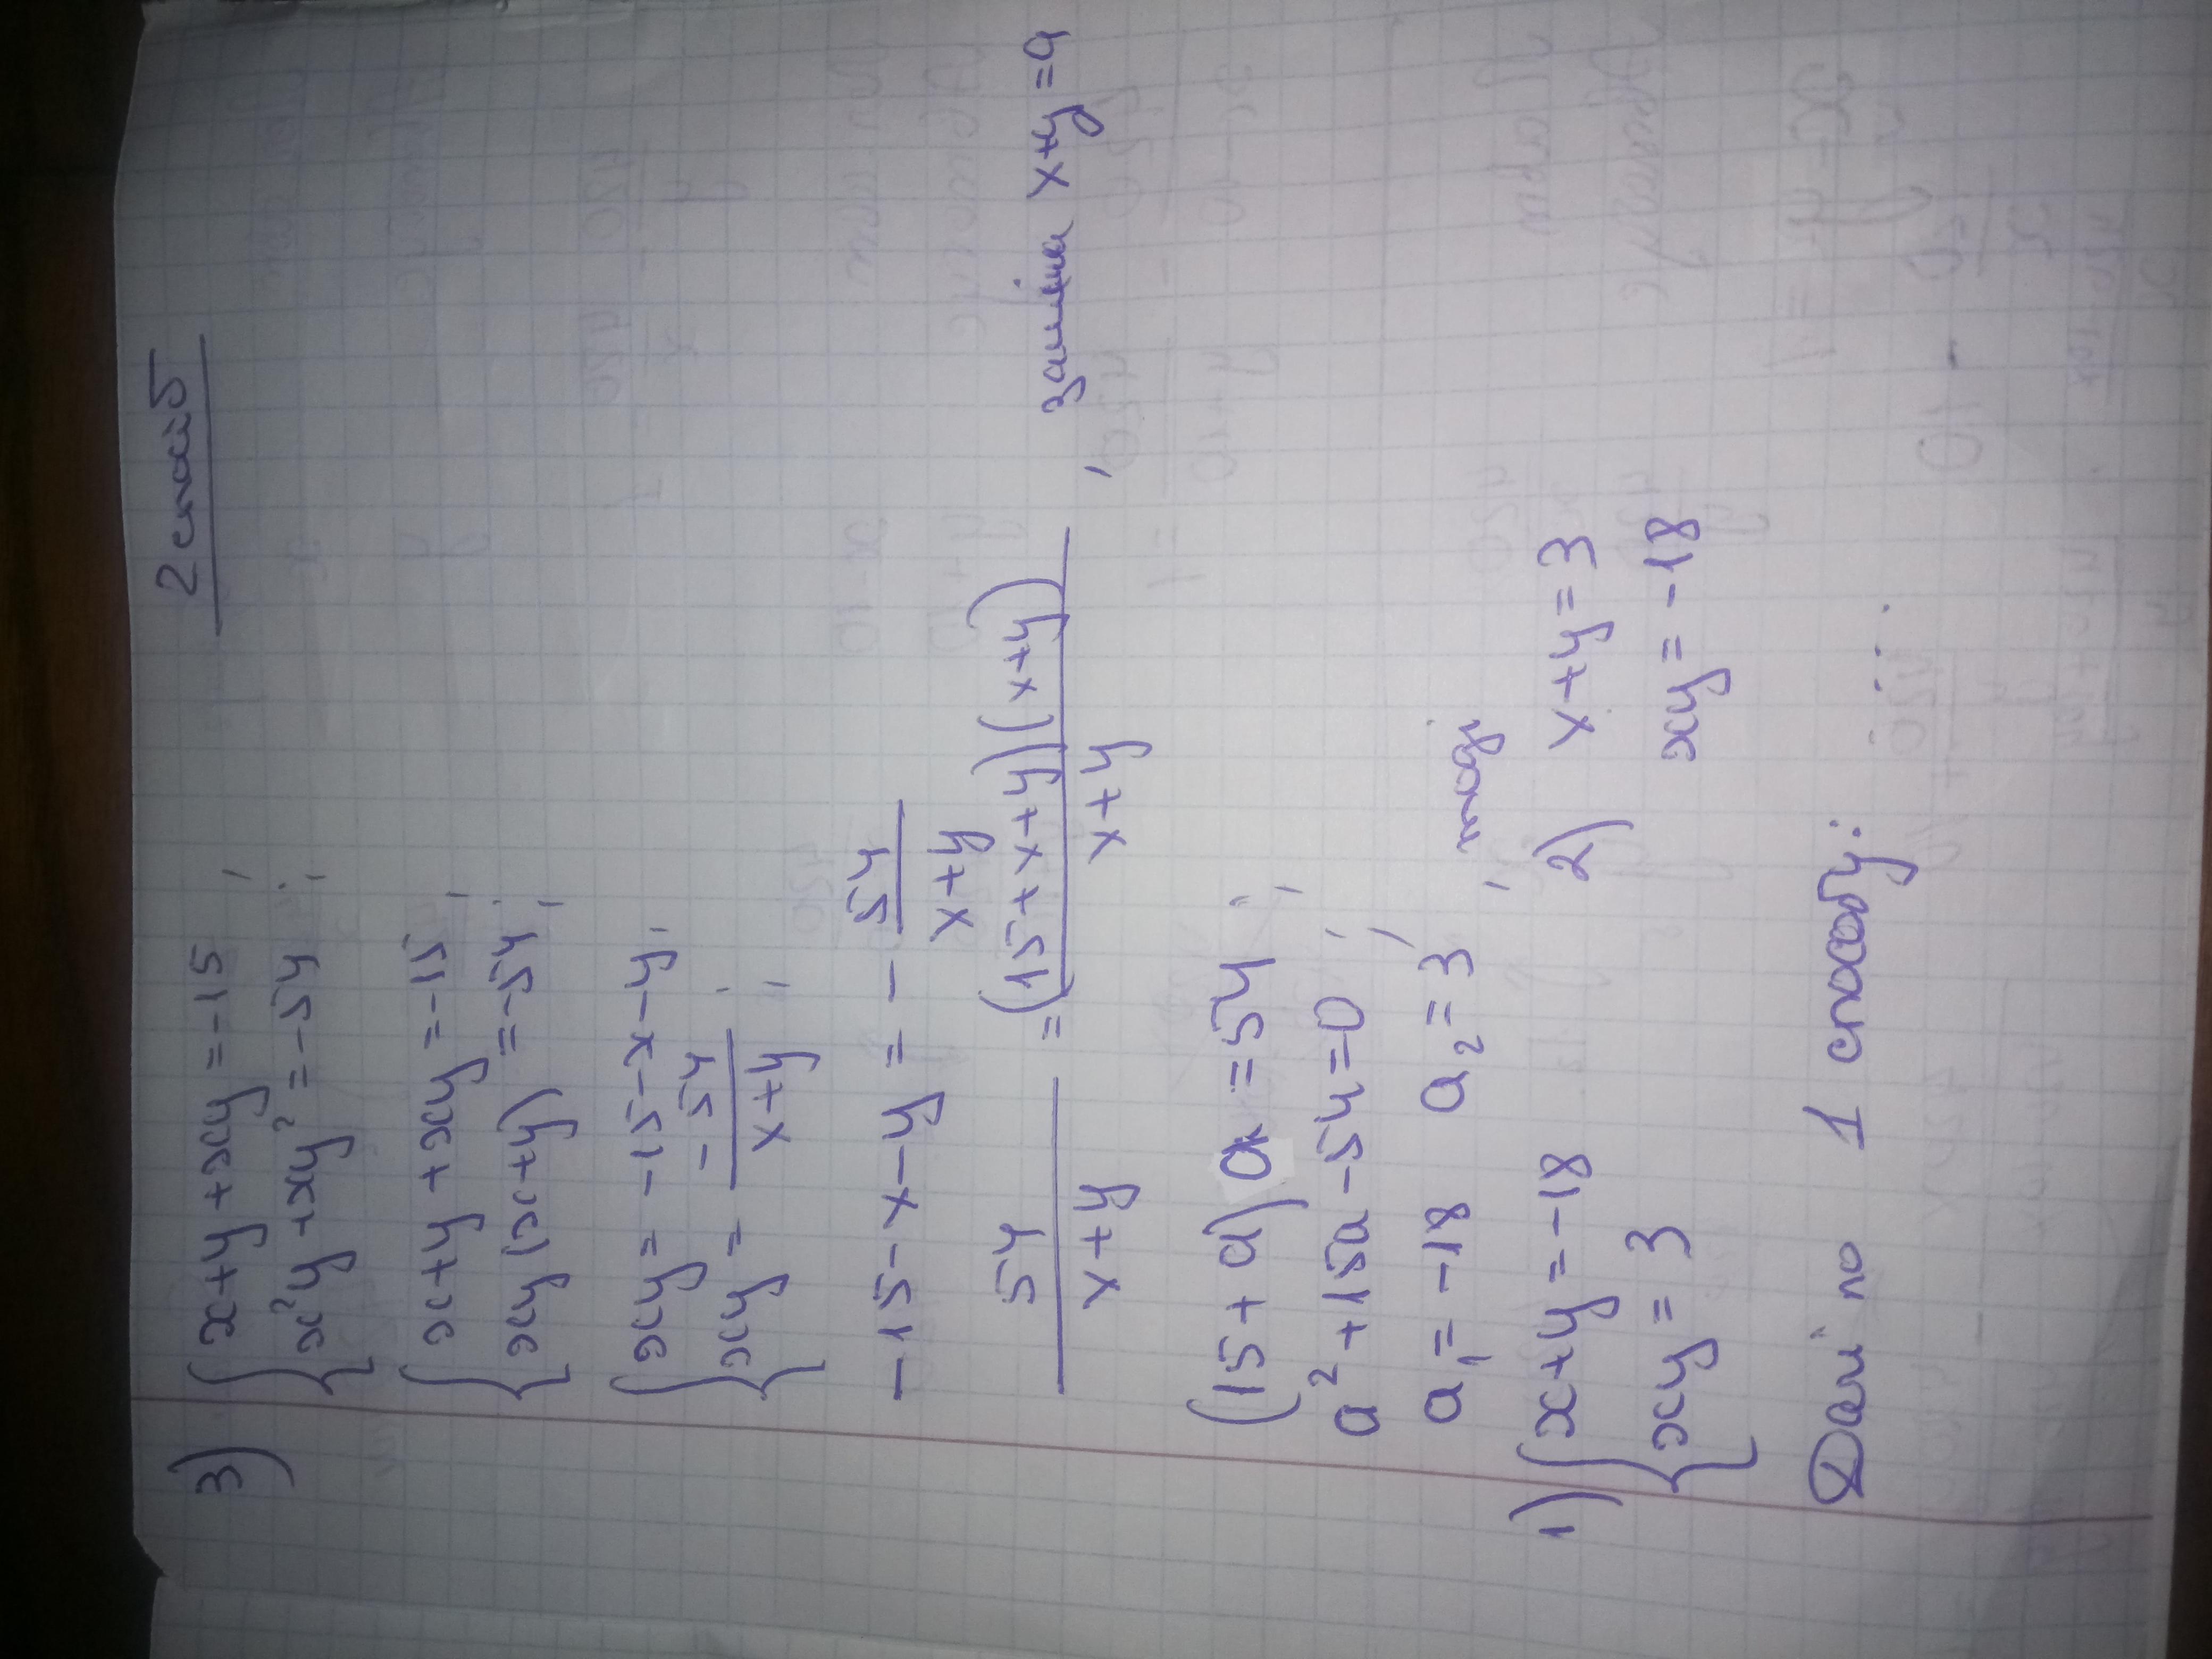 2 спосіб
3) { x+y+xy=-15,
x²y+xy²=-54;
{ x+y+xy=-15,
xy(x+y)=-54;
{ xy=-15-x-y,
xy= -54/(x+y);
-15-x-y = - 54/(x+y)
54/(x+y) = (15+x+y)(x+y)/(x+y), заміна x+y=a
(15+a)a=54;
a²+15a-54=0,
a₁=-18 a₂=3, тоді
1) { x+y=-18 2) x+y=3
xy=3 xy=-18
Далі по 1 способу: ...